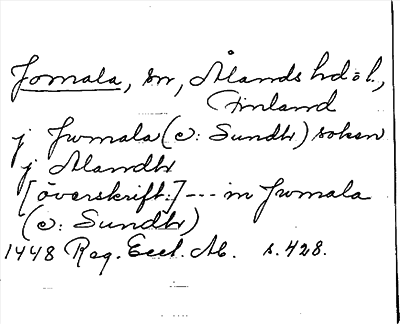 Jomala, sn, Ålands hd o l.,
Finland
j Jwmala (ɔ: Sundh) soken
j Alandh
[överskrift:] --- in Jwmala
(ɔ: Sundh)
1448 Reg. Eccl. Ab. s. 428.